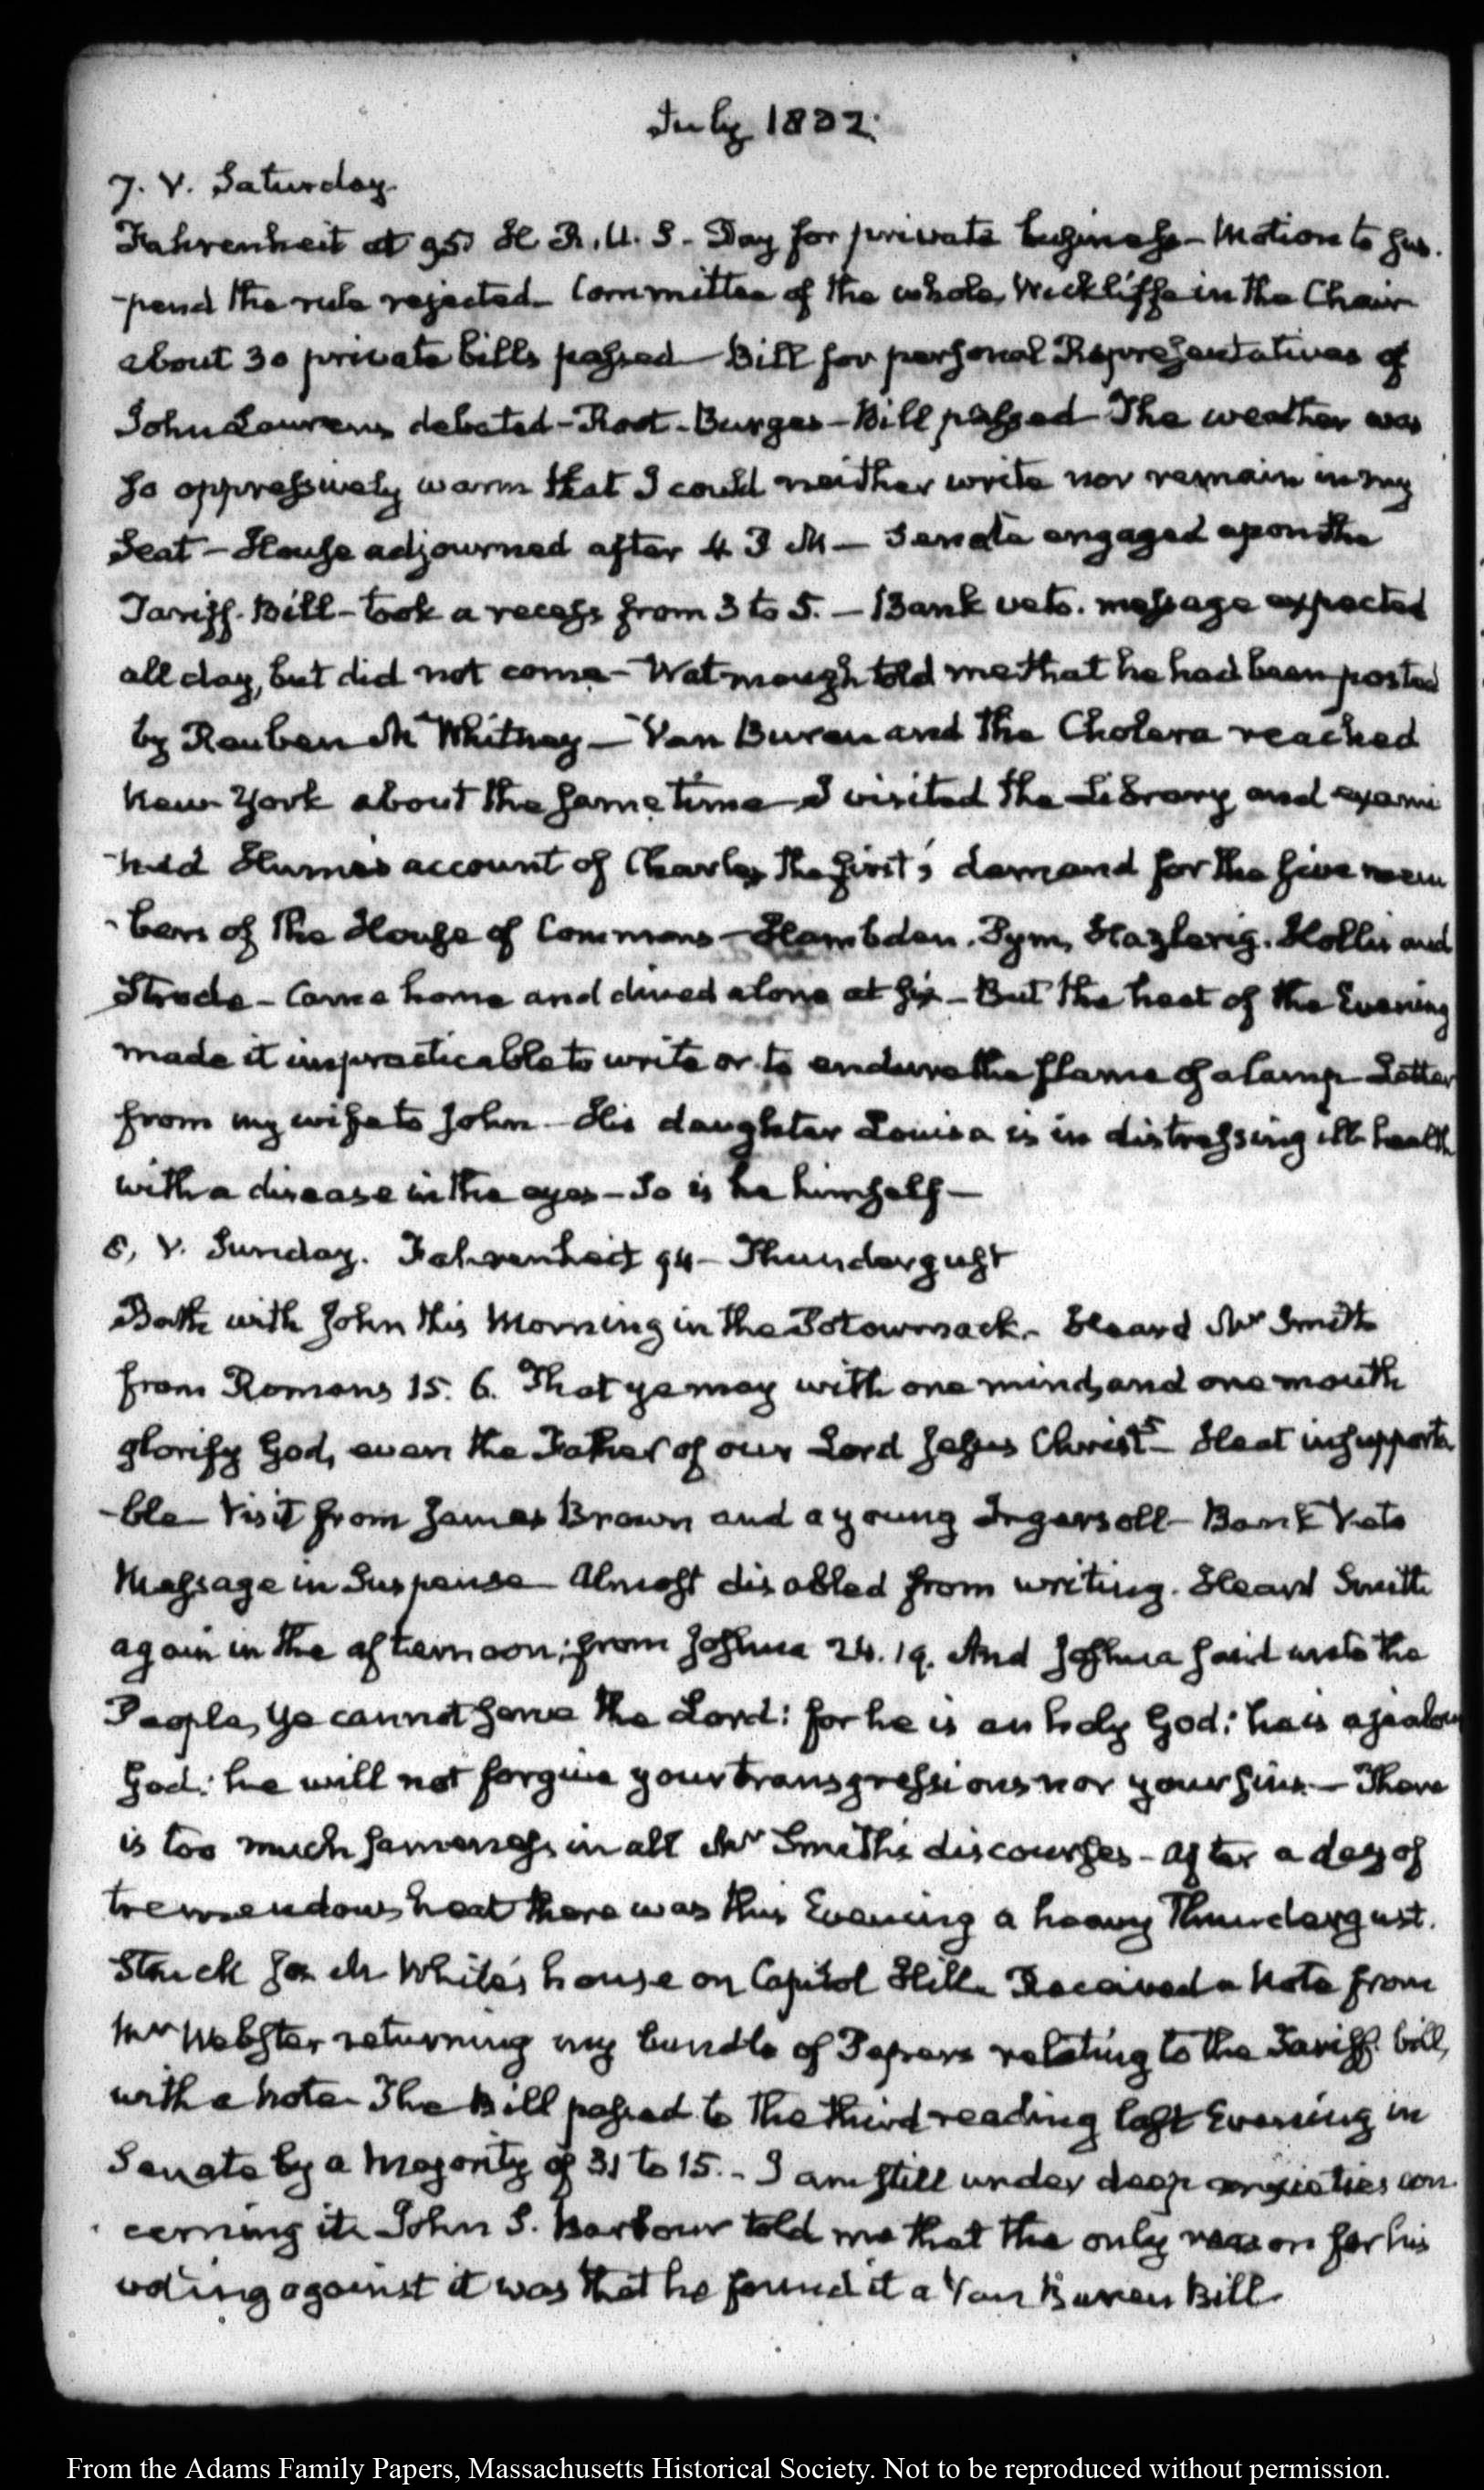 July 1832.
7. V. Saturday.
Fahrenheit at 95. H. R. U. S. - Day for private business - Motion to sus-
-pend the rule rejected - Committee of the whole, Wickliffe in the Chair
about 30 private bills passed - Bill for personal Representatives of
John Laurens debated - Root - Burges - Bill passed - The weather was
so oppressively warm that I could neither write nor remain in my
Seat - House adjourned after 4 P M - Senate engaged upon the
Tariff. Bill - took a recess from 3 to 5. - Bank veto. message expected
all day, but did not come - Watmough told me that he had been posted
by Reuben M Whitney - Van Buren and the Cholera reached
New York about the same time - I visited the Library and exami
-ned Hume's account of Charles the first's demand for the five mem
-bers of the House of Commons - Hambden, Pym, Hazlerig, Hollis and
Strode - Came home and dined alone at six - But the heat of the Evening
made it impracticable to write or to endure the flame of a lamp - Letter
from my wife to John - His daughter Louisa is in distressing ill health
with a disease in the eyes - So is he himself -
8. V. Sunday. Fahrenheit 94 - Thundergust
Bath with John this Morning in the Potowmack - Heard Mr Smith
from Romans 15. 6. That ye may with one mind, and one mouth
glorify God, even the Father of our Lord Jesus Christ - Heat insupporta
-ble - Visit from James Brown and a young Ingersoll - Bank Veto
Message in Suspense - Almost disabled from writing. Heard Smith
again in the afternoon; from Joshua 24. 19. And Joshua said unto the
People, Ye cannot serve the Lord: for he is an holy God: he is a jealous
God: he will not forgive your transgressions nor your sins. - There
is too much sameness in all Mr Smith's discourses - After a day of
tremendous heat there was this Evening a heavy Thundergust.
Struck M White's house on Capitol Hill - Received a Note from
Mr Webster returning my bundle of Papers relating to the Tariff bill,
with a Note - The Bill passed to the third reading last Evening in
Senate by a Majority of 31 to 15. - I am still under deep anxieties con-
cerning it. John S. Barbour told me that the only reason for his
voting against it was that he found it a Van Buren Bill -
From the Adams Family Papers, Massachusetts Historical Society. Not to be reproduced without permission.